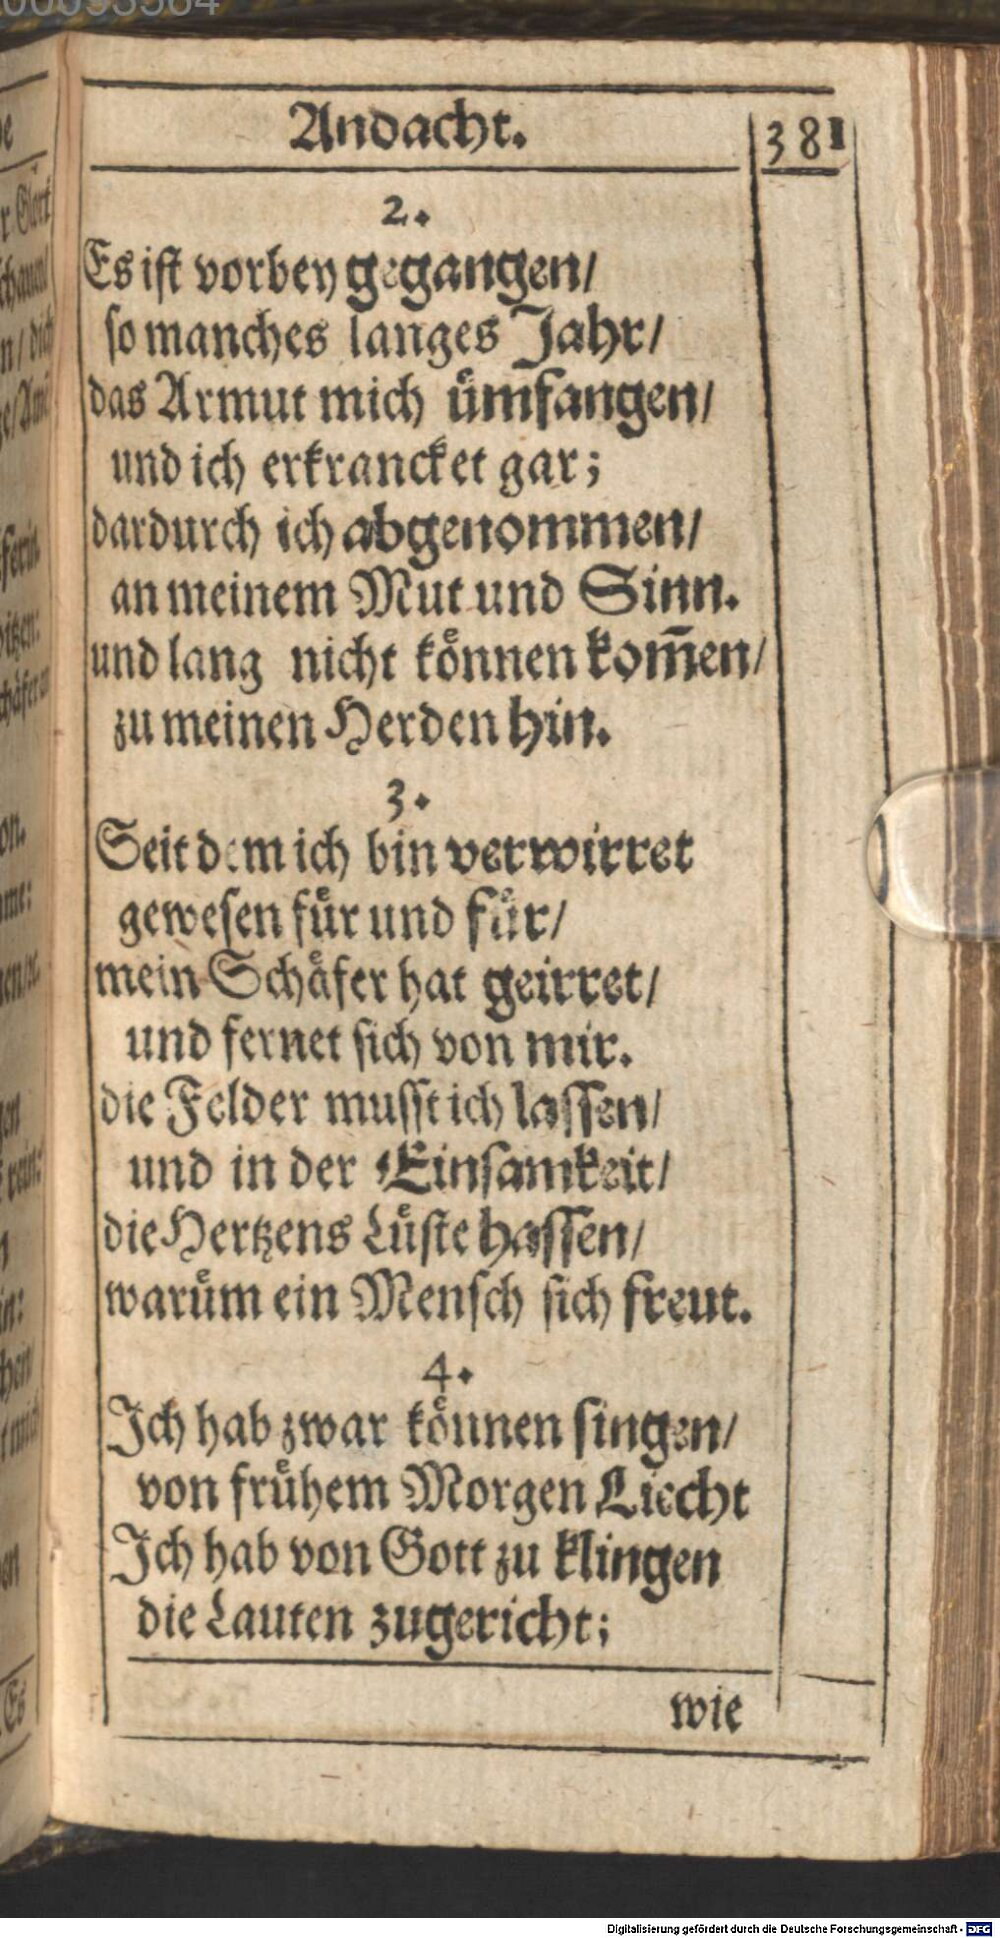 Andacht. 381
2.
Es ist vorbey gegangen/
so manches langes Jahr/
das Armut mich ůmfangen/
und ich erkrancket gar;
dardurch ich abgenommen/
an meinem Mut und Sinn.
und lang nicht koͤnnen kom̅en/
zu meinen Herden hin.
3.
Seit dem ich bin verwirret
gewesen fuͤr und fuͤr/
mein Schaͤfer hat geirret/
und fernet sich von mir.
die Felder musst ich lassen/
und in der Einsamkeit/
die Hertzens Luͤste hassen/
waruͤm ein Mensch sich freut.
4.
Ich hab zwar koͤnnen singen/
von fruͤhem Morgen Liecht
Ich hab von Gott zu klingen
die Lauten zugericht;
wie
Digitalisierung gefördert durch die Deutsche Forschungsgemeinschaft - DFG